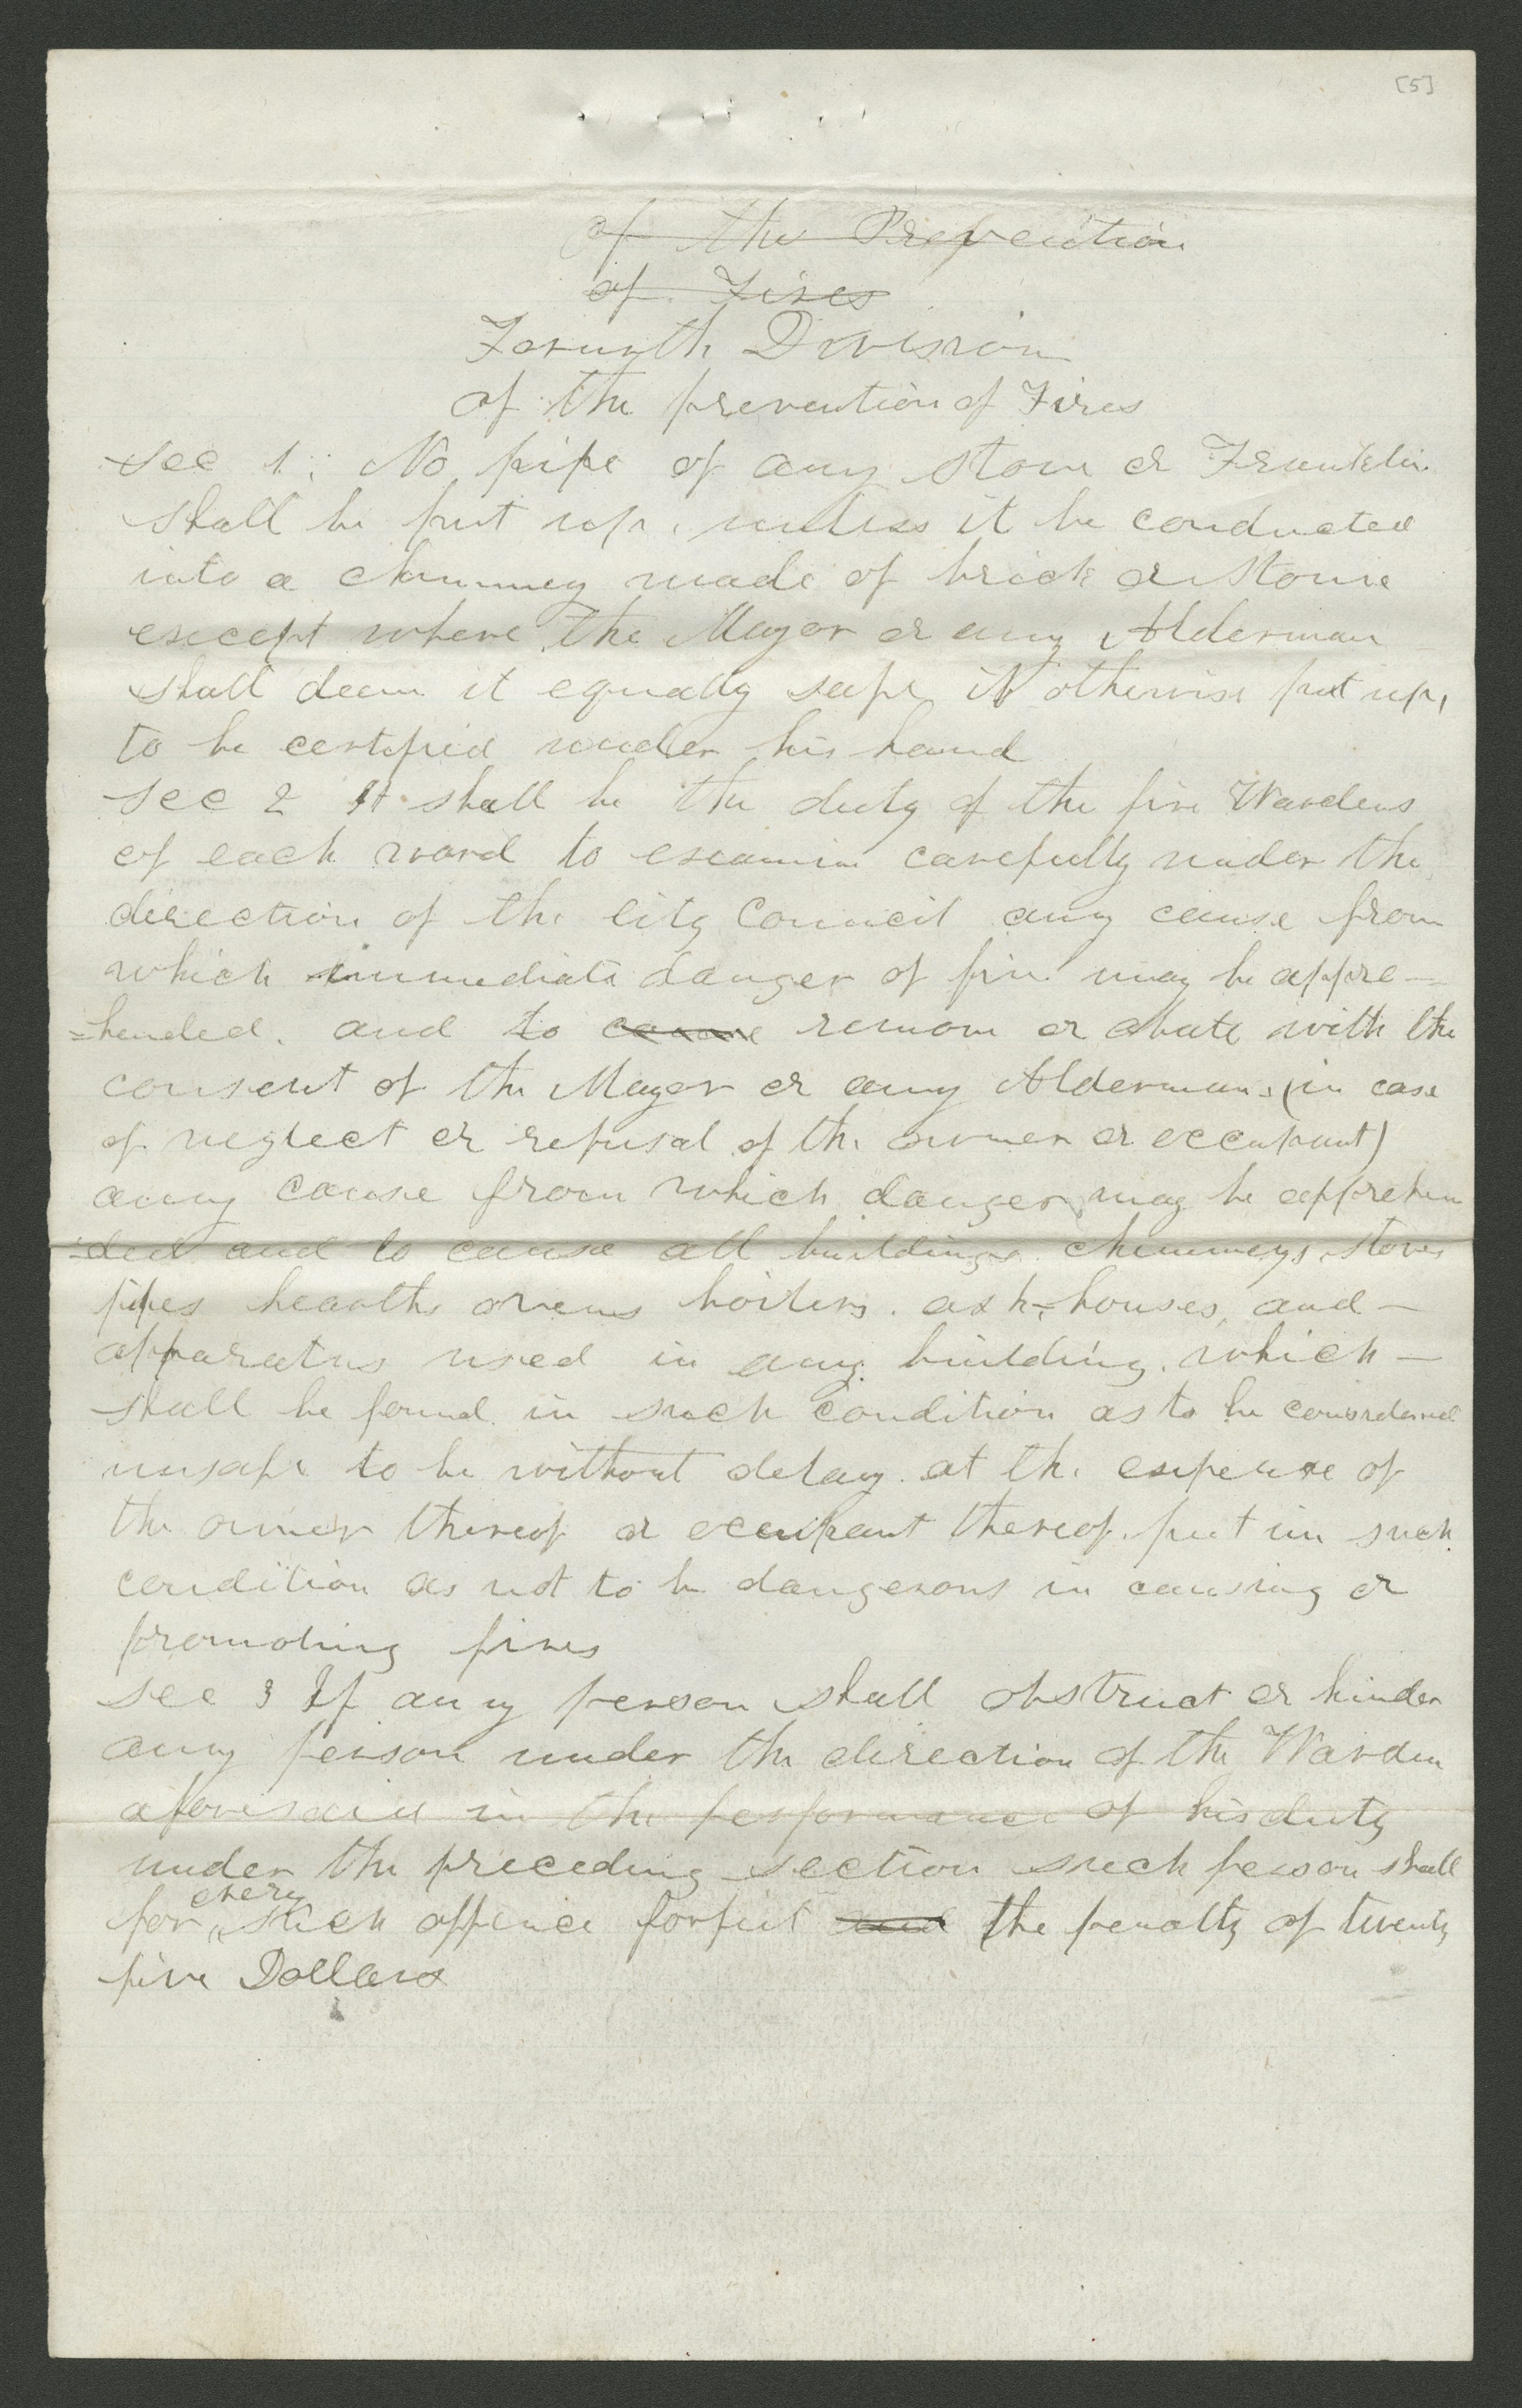 [5]
Of the Prevention
of Fires
Forurth Division
Of the prevention of Fires
Sec 1: No pipe of any stove or Franklin
shall be put up, unless it be conducted
into a chimney made of brick or Stone
except where the Mayor or any Alderman
shall deem it equally safe if otherwise put up,
to be certified under his hand
Sec 2 It shall be the duty of the fire Wardens
of each ward to examine carefully under the
direction of the City Council any cause from
which immediate danger of fire may be appre-
=hended. and to cause remove or abate with the
consent of the Mayor or any Alderman, (in case
of neglect or refusal of the owner or occupant)
any cause from which danger may be apprehen
=ded and to cause all buildings chimneys, stoves
pipes hearths ovens boilers. ash-houses, and -
apparatus used in any building. which -
shall be found in such condition as to be considered
unsafe to be without delay. at the expense of
the owner thereof or occupant thereof. put in such
condition as not to be dangerous in causing or
promoting fires
Sec 3 If any person shall obstruct or hinder
any person under the direction of the Warden
aforesaid in the performance of his duty
under the preceding section such person shall
for every such offence forfeit and the penalty of twenty
five Dollars